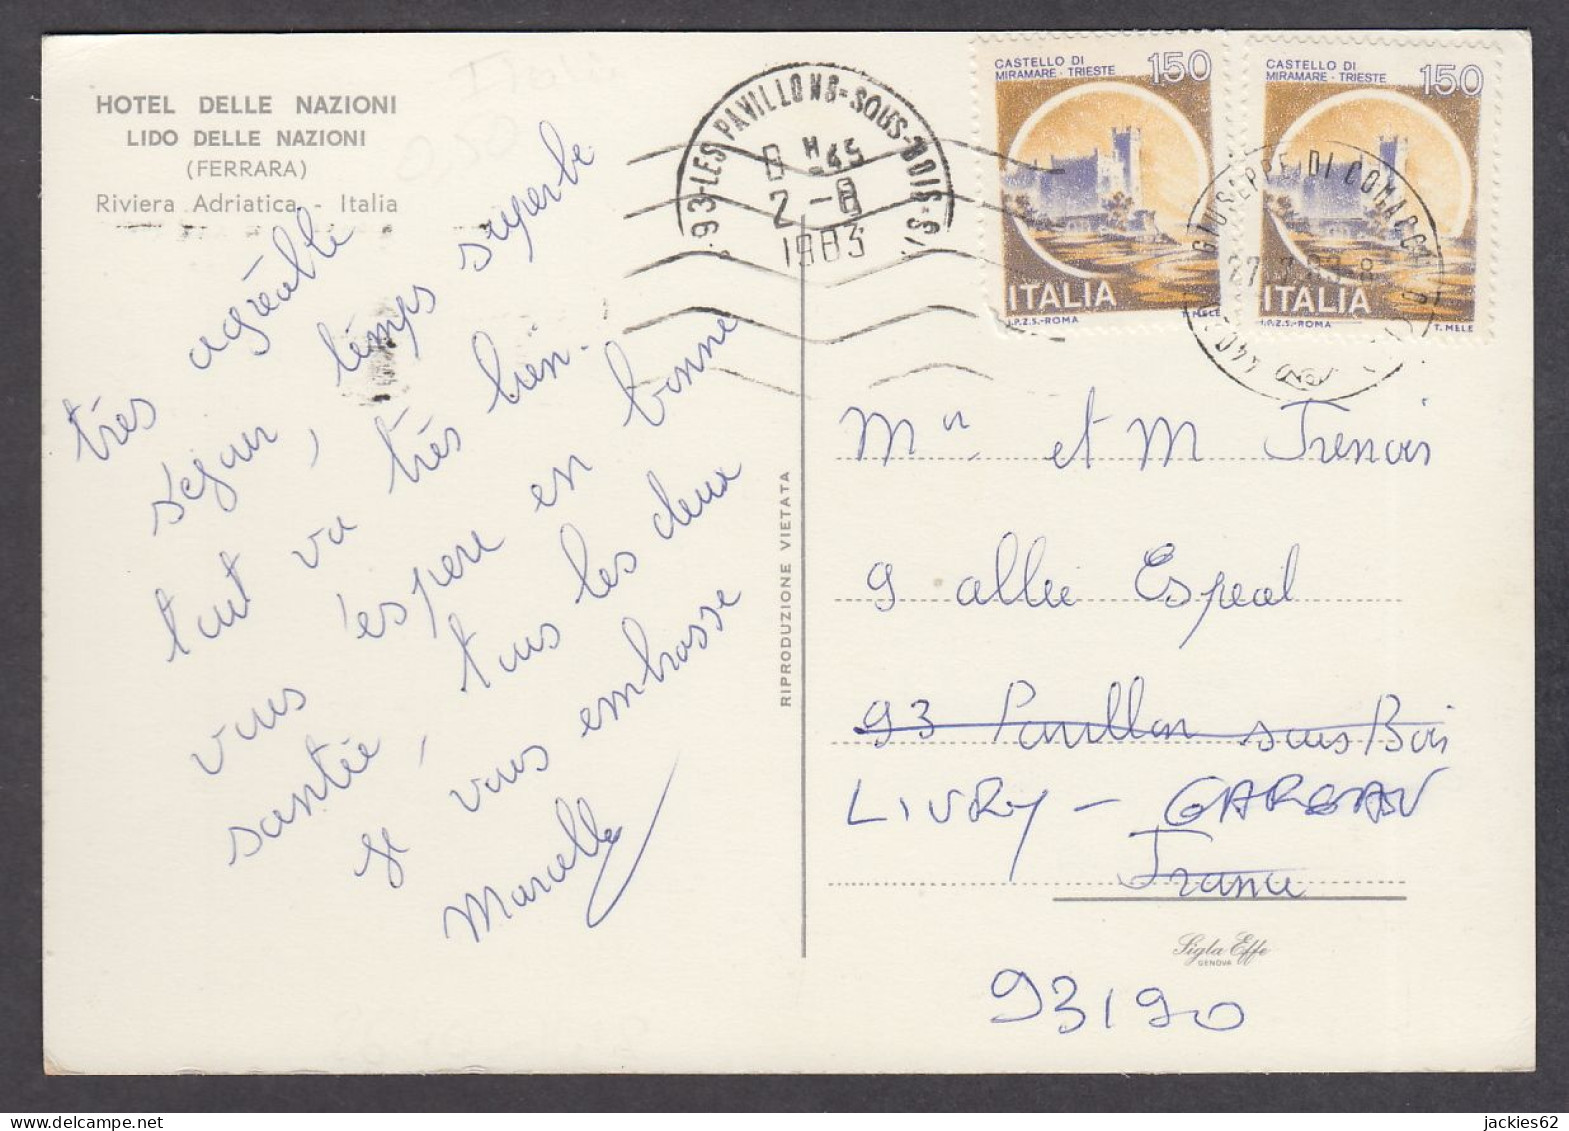 HOTEL DELLE NAZIONI
LIDO DELLE NAZIONI
(FERRARA)
Riviera Adriatica - Italia
très agréable
séjour, temps superbe
tout va très bien.
vous éspere en bonne
santée, tous les deux
je vous embrasse
Marcelle
RIPRODUZIONE VIETATA
93-LES PAVILLONS-SOUS-BOIS-S/
8 H 45
2-8
1983
CASTELLO DI
MIRAMARE - TRIESTE
150
ITALIA
I.P.Z.S.-ROMA T. MELE
CASTELLO DI
MIRAMARE - TRIESTE
150
ITALIA
I.P.Z.S.-ROMA T. MELE
GIUSEPPE DI COMACCHIO
440
Mr et M Trenois
9 allée Espeal
93 Pavillon sous Bois
LIVRY - GARGAN
France
Sigla Effe
GENOVA
93190
jackies62